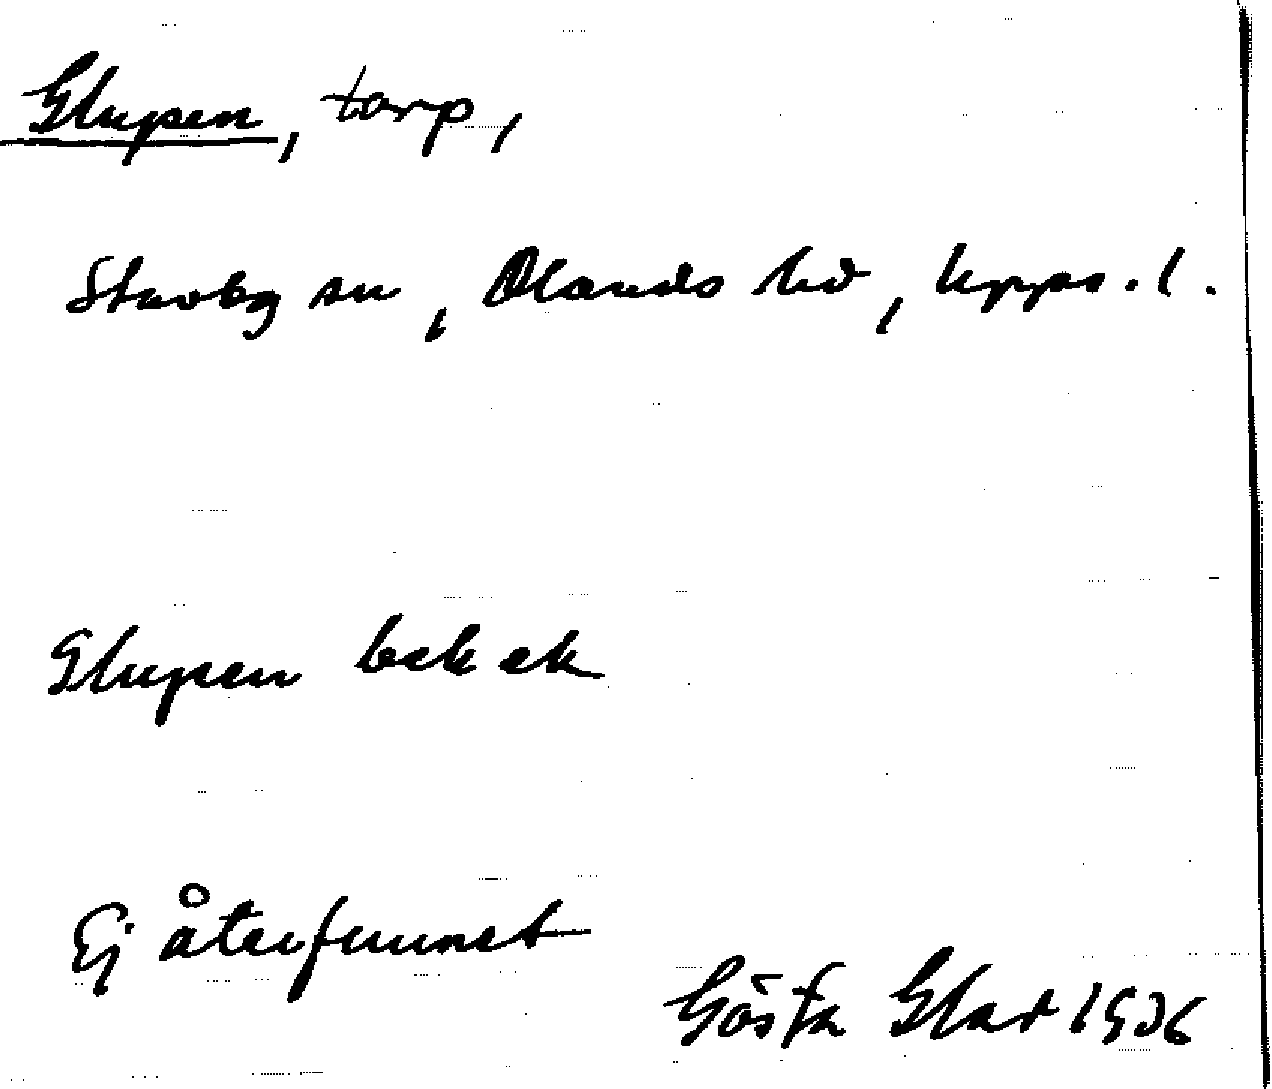 Glupen, torp,
Stavby sn, Olands hd, Upps. l.
Glupen bebek
Ej återfunnet
Gösta Glad 1936